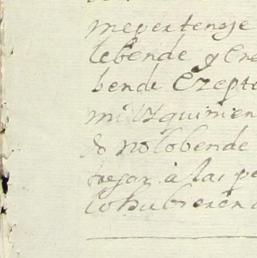 me pertenese
lebende y Ere
bende Ezepto
mil y quinien
do no lo bende
a las pe
lo hubieren